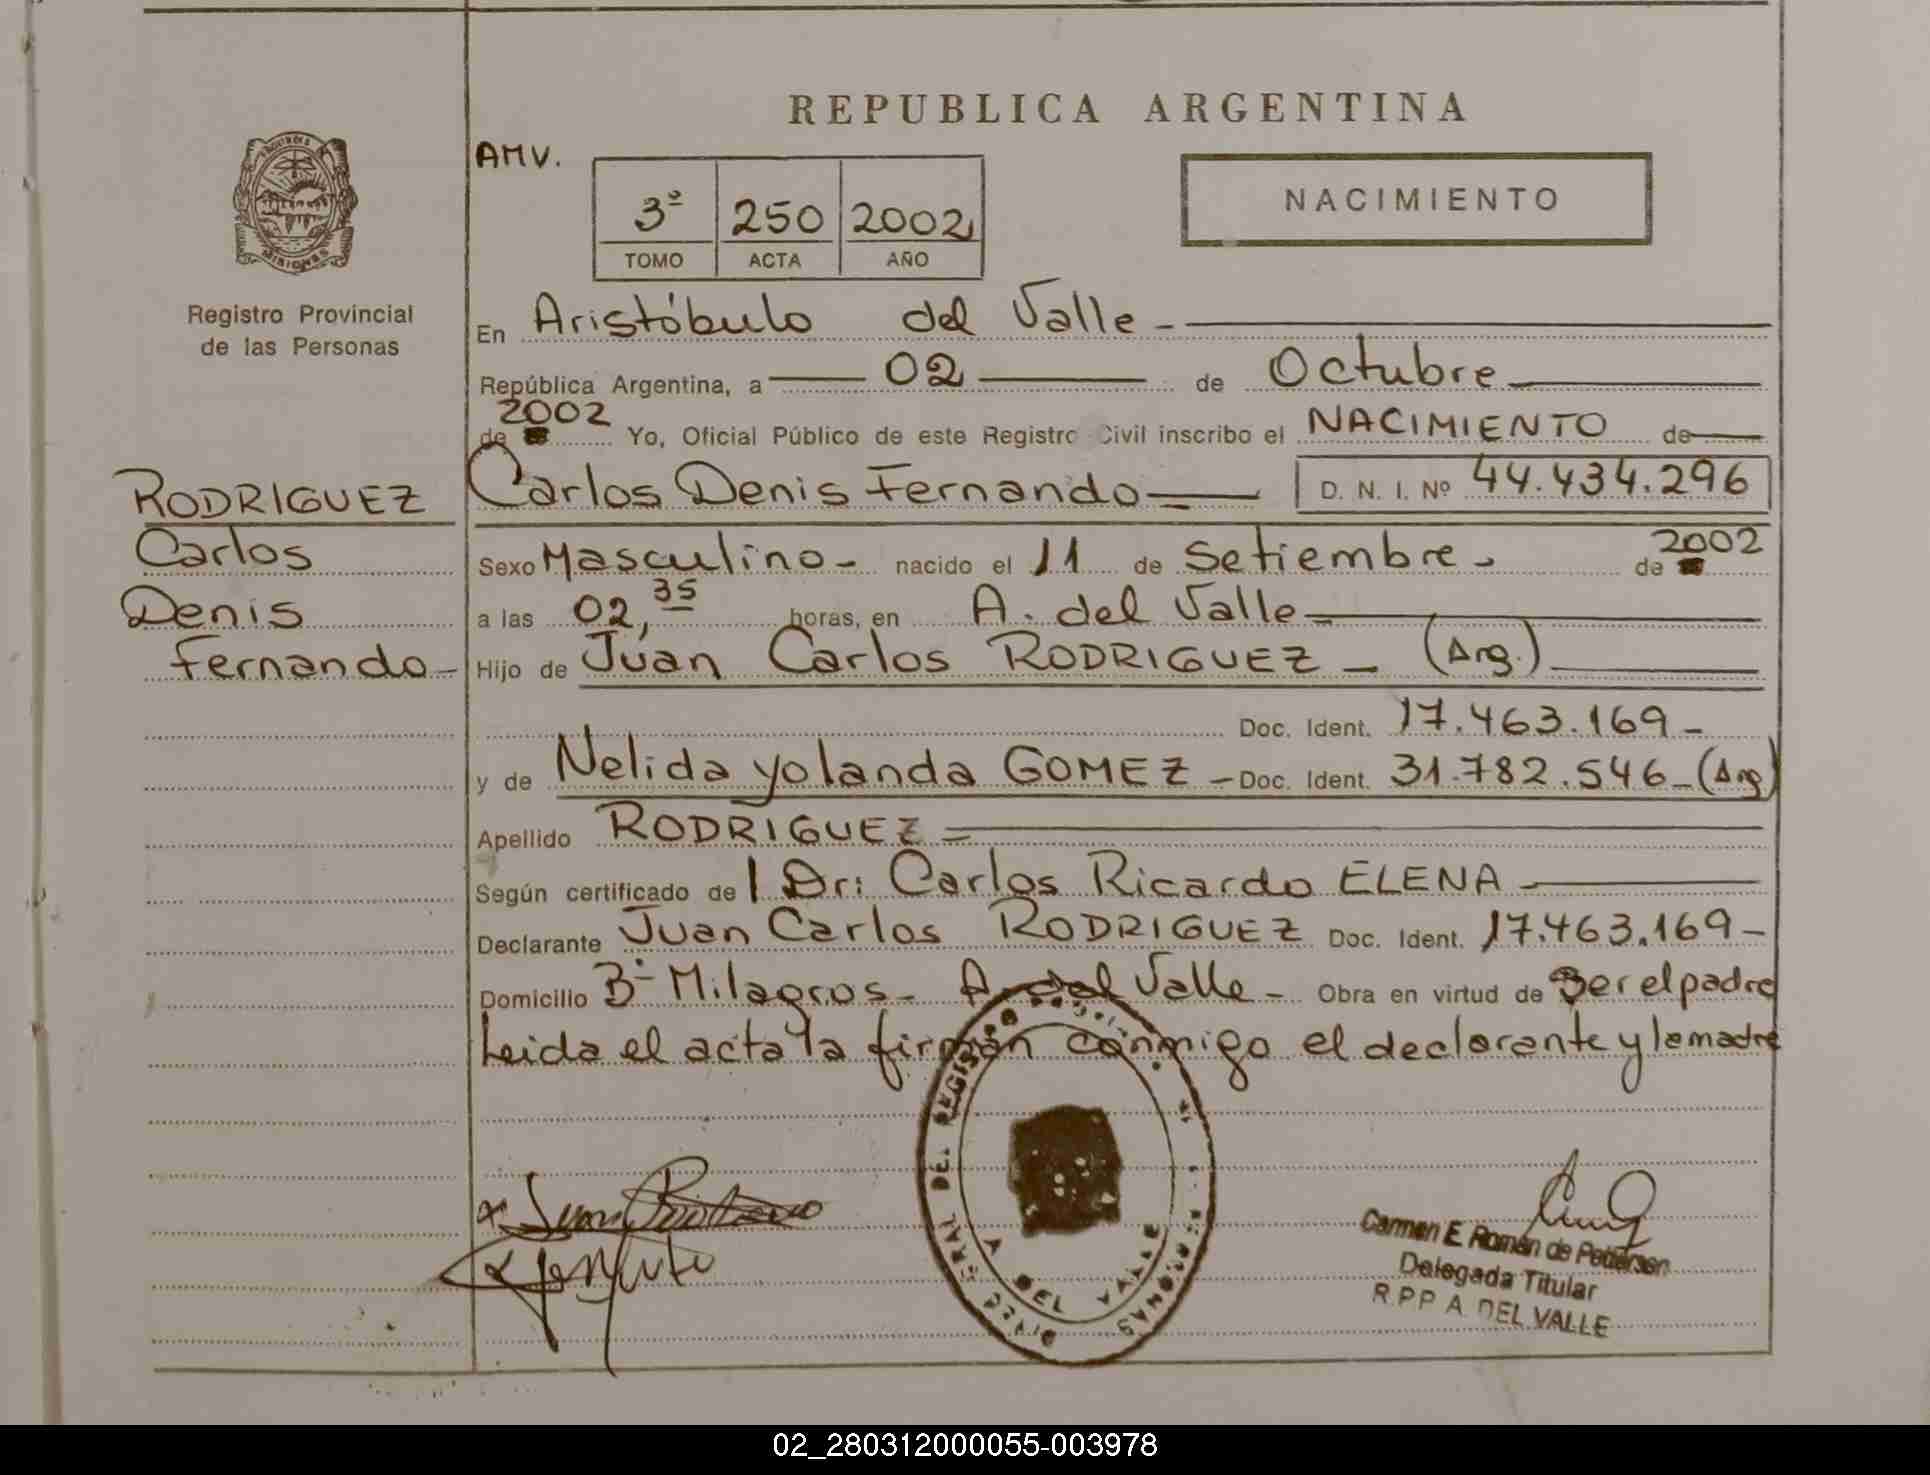 REPUBLICA ARGENTINA
AMV.
3º 250 2002
TOMO ACTA AÑO
NACIMIENTO
MISIONES
Registro Provincial
de las Personas
En Aristóbulo del Valle
República Argentina, a 02 de Octubre
de 2002 Yo, Oficial Público de este Registro Civil inscribo el NACIMIENTO de
RODRIGUEZ
Carlos
Denis
Fernando
Carlos Denis Fernando D. N. I. Nº 44.434.296
Sexo Masculino nacido el 11 de Setiembre de 2002
a las 02,35 horas, en A. del Valle
Hijo de Juan Carlos RODRIGUEZ (Arg.)
Doc. Ident. 17.463.169
y de Nelida yolanda GOMEZ Doc. Ident. 31.782.546 (Arg)
Apellido RODRIGUEZ
Según certificado de Dr: Carlos Ricardo ELENA
Declarante Juan Carlos RODRIGUEZ Doc. Ident. 17.463.169
Domicilio Bº Milagros A. del Valle Obra en virtud de Ser el padre
Leida el acta la firman conmigo el declarante y la madre
DEL REGISTRO
DEL VALLE
PERSONAS
Carmen E. Román de Pedersen
Delegada Titular
R.P.P A. DEL VALLE
02_280312000055-003978